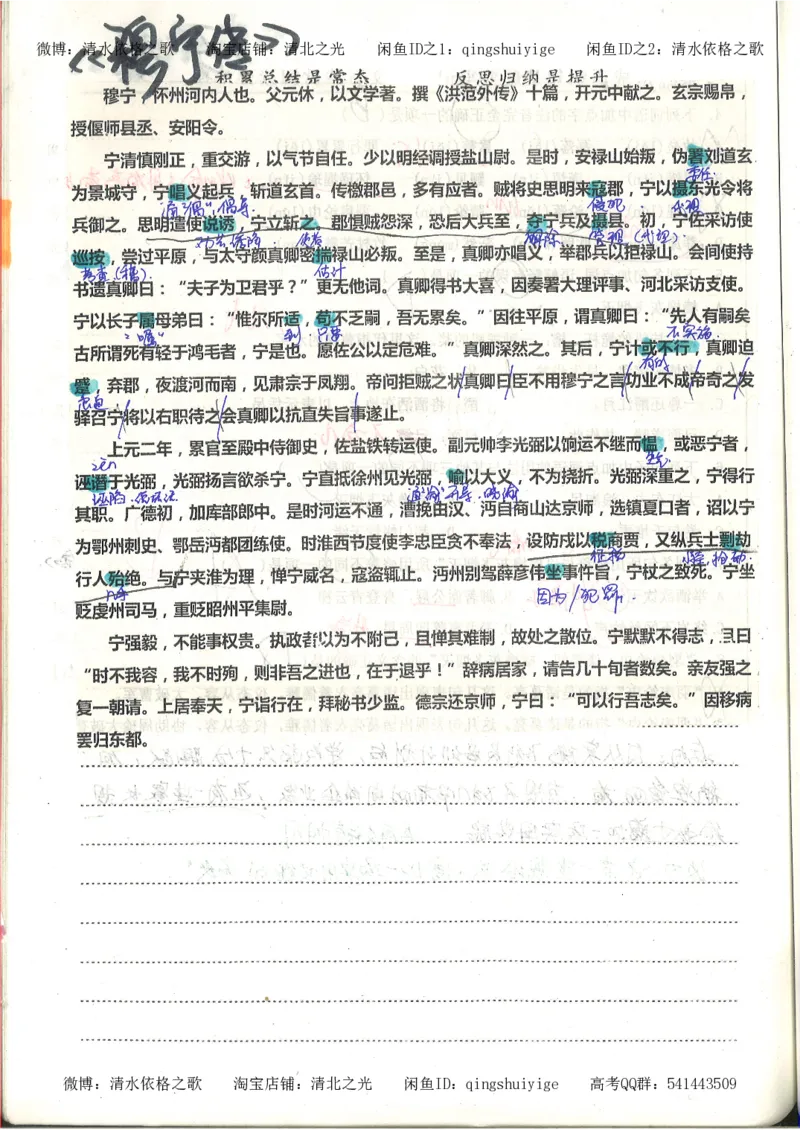 微博：清水依格之歌 淘宝店铺：清北之光 闲鱼ID之1：qingshuiyige 闲鱼ID之2：清水依格之歌
《穆宁传》
积累总结是常态 反思归纳是提升
穆宁，怀州河内人也。父元休，以文学著。撰《洪范外传》十篇，开元中献之。玄宗赐帛，
授偃师县丞、安阳令。
宁清慎刚正，重交游，以气节自任。少以明经调授盐山尉。是时，安禄山始叛，伪署刘道玄
委任
为景城守，宁唱义起兵，斩道玄首。传檄郡邑，多有应者。贼将史思明来寇郡，宁以摄东光令将
通“倡”，倡导 侵犯 代理
兵御之。思明遣使说诱，宁立斩之。郡惧贼怨深，恐后大兵至，夺宁兵及摄县。初，宁佐采访使
使者 解除 管理（代理）
巡按，尝过平原，与太守颜真卿密揣禄山必叛。至是，真卿亦唱义，举郡兵以拒禄山。会间使持
估计
书遗真卿曰：“夫子为卫君乎？”更无他词。真卿得书大喜，因奏署大理评事、河北采访支使。
宁以长子属母弟曰：“惟尔所适，苟不乏嗣，吾无累矣。”因往平原，谓真卿曰：“先人有嗣矣
“嘱” 到 只要 不实施
古所谓死有轻于鸿毛者，宁是也。愿佐公以定危难。”真卿深然之。其后，宁计或不行，真卿迫
有的
蹙，弃郡，夜渡河而南，见肃宗于凤翔。帝问拒贼之状真卿曰臣不用穆宁之言功业不成帝奇之发
驿召宁将以右职待之会真卿以抗直失旨事遂止。
上元二年，累官至殿中侍御史，佐盐铁转运使。副元帅李光弼以饷运不继而愠，或恶宁者，
诬谮于光弼，光弼扬言欲杀宁。宁直抵徐州见光弼，喻以大义，不为挠折。光弼深重之，宁得行
其职。广德初，加库部郎中。是时河运不通，漕挽由汉、沔自商山达京师，选镇夏口者，诏以宁
为鄂州刺史、鄂岳沔都团练使。时淮西节度使李忠臣贪不奉法，设防戍以税商贾，又纵兵士剽劫
行人殆绝。与宁夹淮为理，惮宁威名，寇盗辄止。沔州别驾薛彦伟坐事忤旨，宁杖之致死。宁坐
几乎 因为/犯罪
贬虔州司马，重贬昭州平集尉。
宁强毅，不能事权贵。执政者以为不附己，且惮其难制，故处之散位。宁默默不得志，且曰
“时不我容，我不时殉，则非吾之进也，在于退乎！”辞病居家，请告几十旬者数矣。亲友强之
复一朝请。上居奉天，宁诣行在，拜秘书少监。德宗还京师，宁曰：“可以行吾志矣。”因移病
罢归东都。
微博：清水依格之歌 淘宝店铺：清北之光 闲鱼ID：qingshuiyige 高考QQ群：541443509